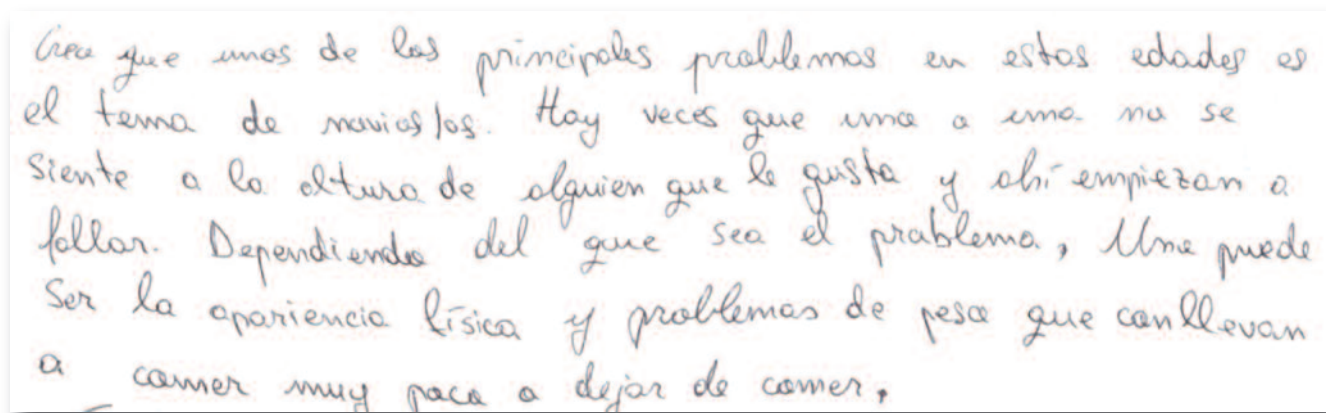 Creo que unos de los principales problemas en estas edades es
el tema de novias/os. Hay veces que uno o una no se
siente a la altura de alguien que le gusta y ahí empiezan a
fallar. Dependiendo del que sea el problema, Uno puede
ser la apariencia física y problemas de peso que conllevan
a comer muy poco o dejar de comer.